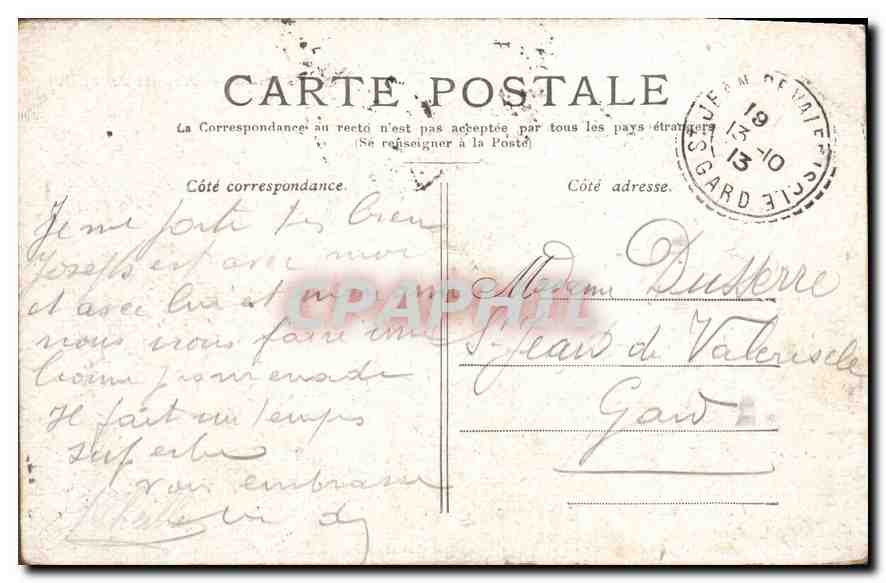 CARTE POSTALE
La Correspondance au recto n'est pas acceptée par tous les pays étrangers
(Se renseigner à la Poste)
Côté correspondance.
Je me porte très bien
Joseph est avec moi
et avec lui et
nous nous faire une
bonne promenade
Il fait un temps
superbe
vous embrasse
Côté adresse.
Madame Dusserre
St Jean de Valeriscle
Gard
ST JEAN DE VALERISCLE
GARD
19
13-10
13
CPAPHIL